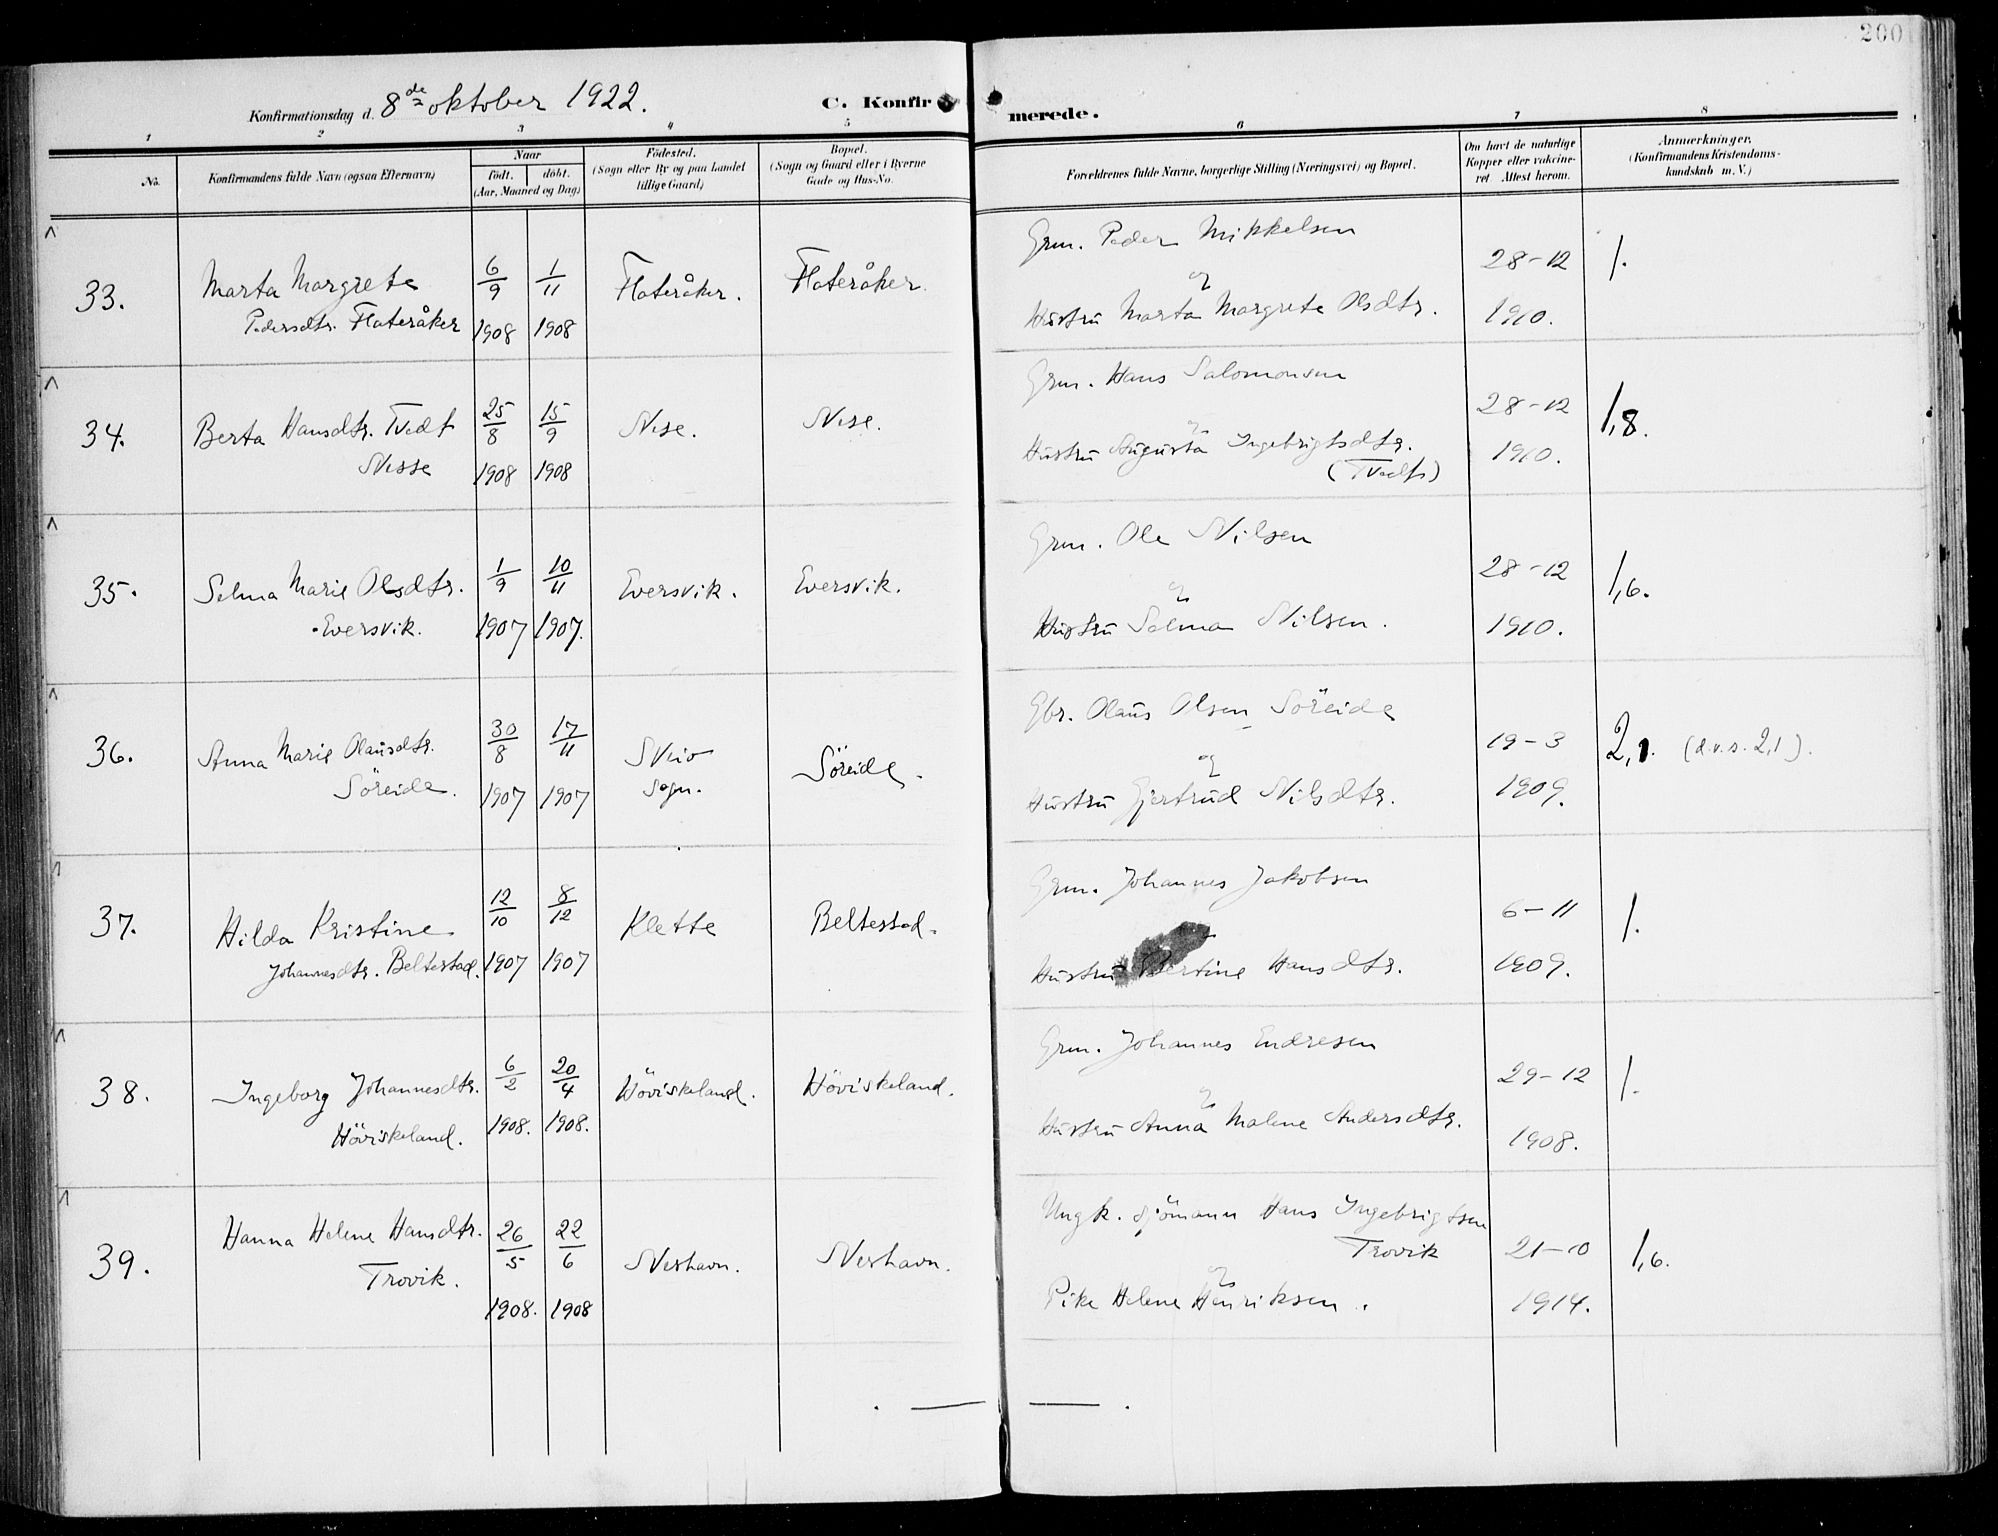 200
Konfirmationsdag d. 8de oktober 1922. C. Konfirmerede.
1 2 3 4 5 6 7 8
No. Konfirmandens fulde Navn (ogsaa Efternavn) Naar født. døbt. (Aar, Maaned og Dag) Fødested. (Sogn eller By og paa Landet tillige Gaard) Bopæl. (Sogn og Gaard eller i Byerne Gade og Hus-No. Forældrenes fulde Navne, borgerlige Stilling (Næringsvei) og Bopæl. Om havt de naturlige Kopper eller vaccineret Attest herom. Anmærkninger. (Konfirmandens Kristendomskundskab m. V.)
Grm. Peder Mikkelsen
33. Marta Margrete 6/9 1/11 Flateråker. Flateråker. og 28-12 1.
Pedersdtr. Flateråker 1908 1908 Hustru Marta Margrete Olsdtr. 1910.
Grm. Hans Salomonsen
34. Berta Hansdtr. Tvedt 25/8 15/9 Nese. Nese. og 28-12 1,8.
Nesse 1908 1908 Hustru Augusta Ingebrigtsdtr. 1910.
(Tvedt)
Grm. Ole Nilsen
35. Selma Marie Olsdtr. 1/9 10/11 Eversvik. Eversvik. og 28-12 1,6.
Eversvik. 1907 1907. Hustru Selma Nilsen. 1910.
Gbr. Olaus Olsen Söreide
36. Anna Marie Olausdtr. 30/8 17/11 Sveio Söreide. og 19-3 2,1. (d.v.s. 2,1).
Söreide. 1907 1907 Sogn. Hustru Gjertrud Nilsdtr. 1909.
Grm. Johannes Jakobsen
37. Hilda Kristine 12/10 8/12 Klette Beltestad. 6-11 1.
Johannesdtr. Beltestad. 1907 1907 Hustru Bertine Hansdtr. 1909.
Grm. Johannes Endresen
38. Ingeborg Johannesdtr. 6/2 20/4 Höviskeland. Höviskeland. og 29-12 1.
Höviskeland. 1908. 1908. Hustru Anna Malene Andersdtr. 1908.
Ungk. sjömann Hans Ingebrigtsen
39. Hanna Helene Hansdtr. 26/5 22/6 Neshavn. Neshavn. Trovik 21-10 1,6.
Trovik. og
1908. 1908 Pike Helene Henriksen. 1914.